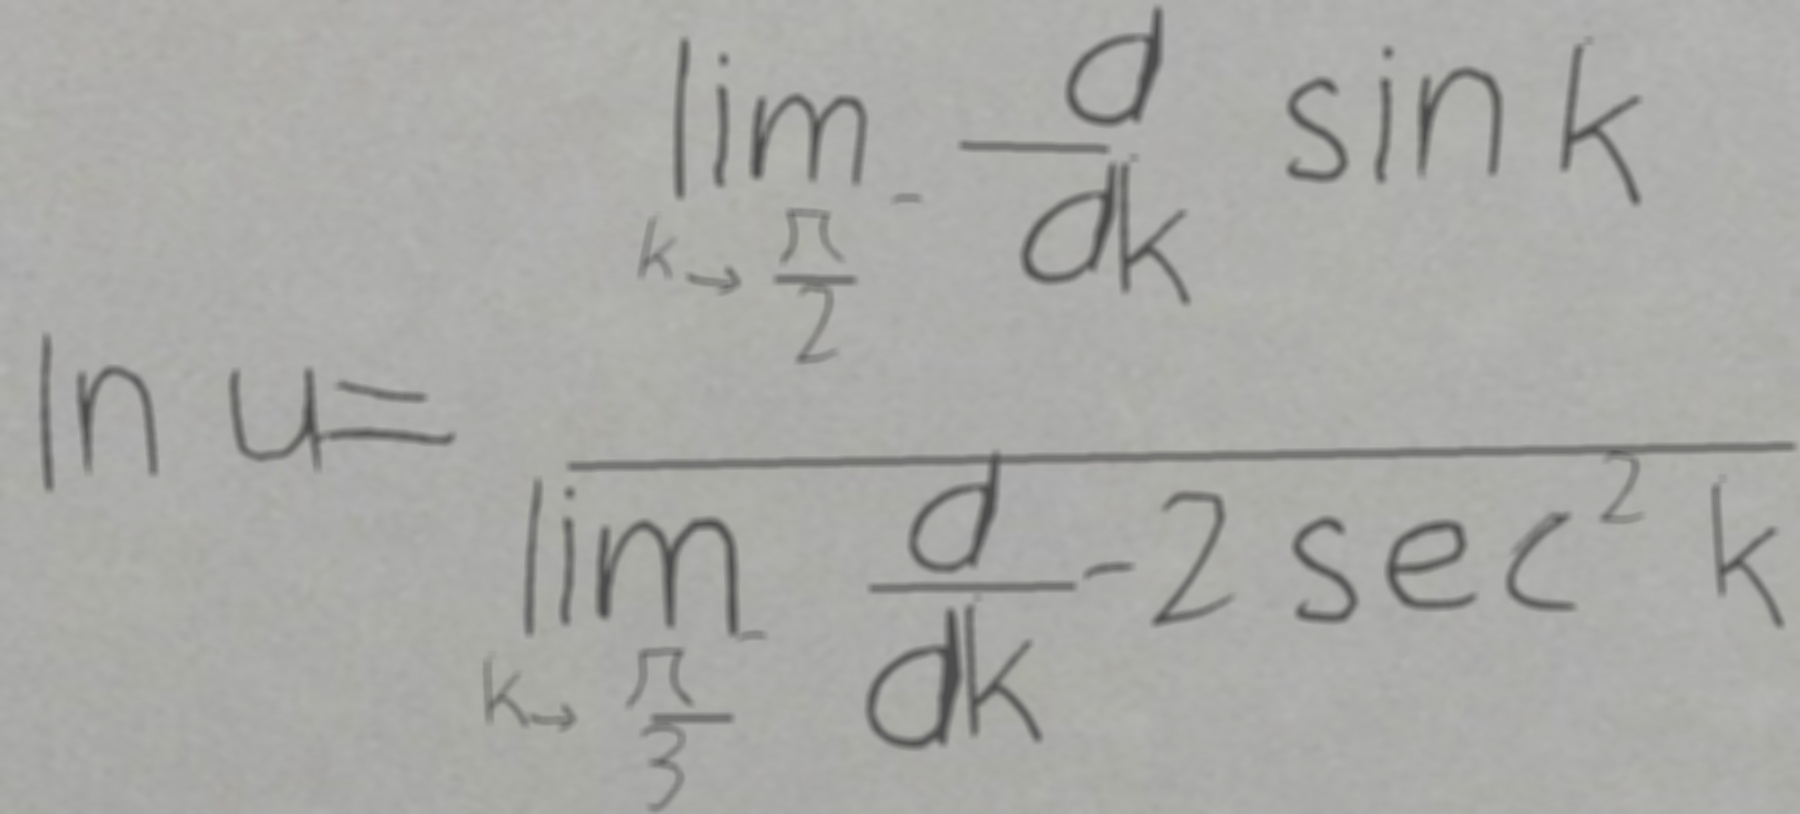 ln u = \frac{\lim_{k \to \frac{\pi}{2}^-} \frac{d}{dk} \sin k}{\lim_{k \to \frac{\pi}{3}^-} \frac{d}{dk} -2 \sec^2 k}